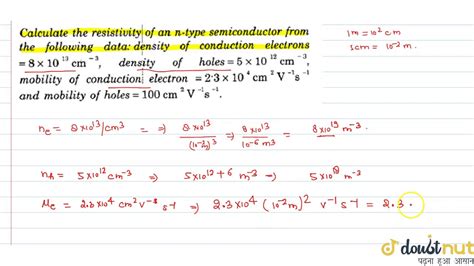 Calculate the resistivity of an n-type semiconductor from
the following data: density of conduction electrons
= 8 × 10¹³ cm⁻³, density of holes = 5 × 10¹² cm⁻³,
mobility of conduction electron = 2·3 × 10⁴ cm² V⁻¹s⁻¹
and mobility of holes = 100 cm² V⁻¹s⁻¹.
1m = 10² cm
1cm = 10⁻² m.
nₑ = 8×10¹³/cm³ ⇒ 8×10¹³/(10⁻²)³ ⇒ 8×10¹³/10⁻⁶ m³ = 8×10¹⁹ m⁻³
nₕ = 5×10¹² cm⁻³ ⇒ 5×10¹²⁺⁶ m⁻³ ⇒ 5×10¹⁸ m⁻³
μₑ = 2.3×10⁴ cm² V⁻¹ s⁻¹ ⇒ 2.3×10⁴ (10⁻²m)² V⁻¹ s⁻¹ = 2.3
doubtnut
पढ़ना हुआ आसान